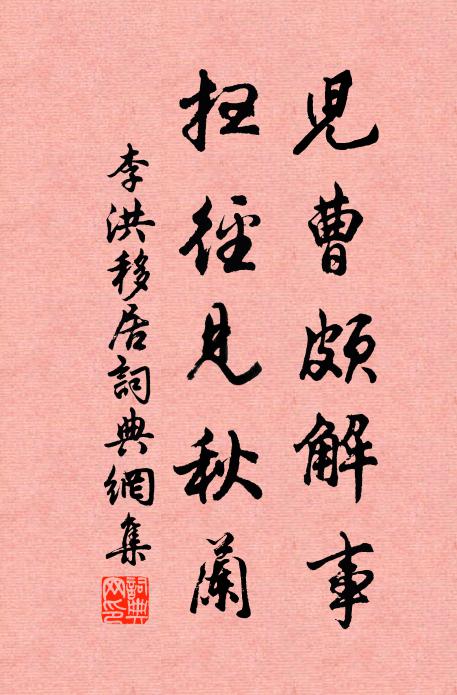 児曹頗解事
扫徑見秋蘭
李洪移居詞典網集
詞典網印